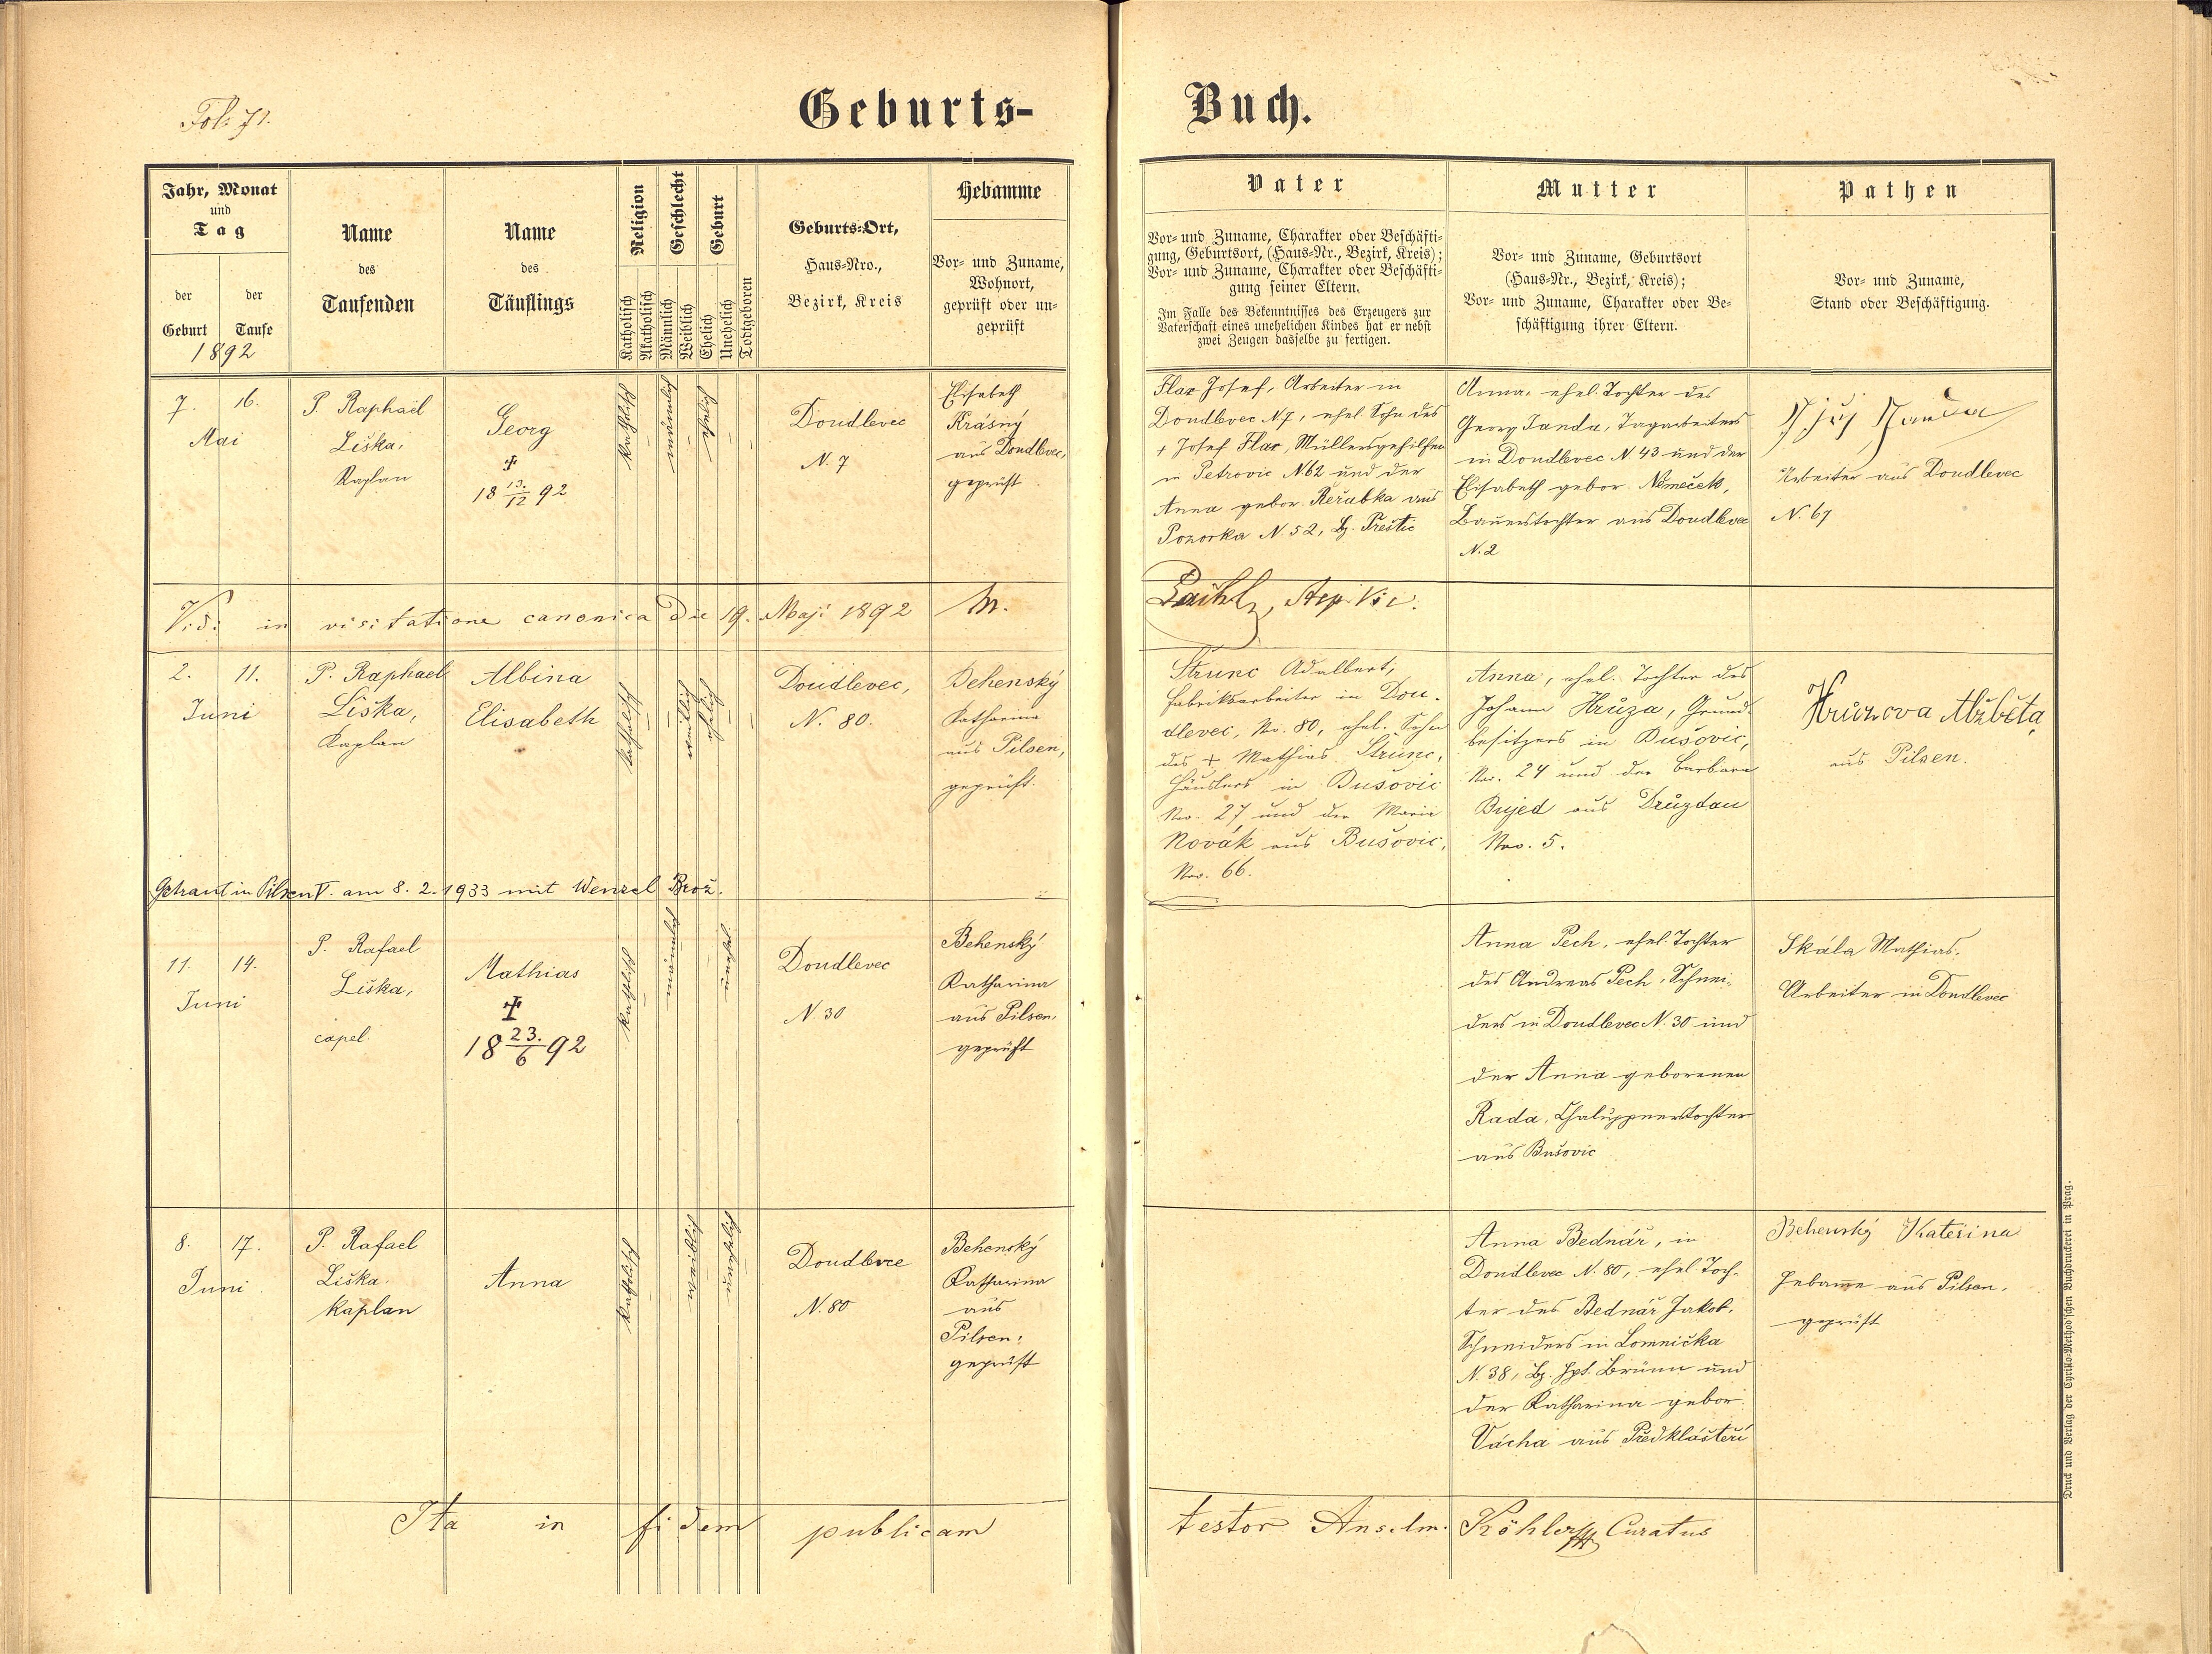 Fol: 71.
Geburts-
Buch.
Jahr, Monat
und
Tag
der
Geburt
der
Taufe
1892
Name
des
Taufenden
Name
des
Täuflings
Religion
Katholisch
Akatholisch
Geschlecht
Männlich
Weiblich
Geburt
Ehelich
Unehelich
Todtgeboren
Geburts-Ort,
Haus-Nro.,
Bezirk, Kreis
Hebamme
Vor- und Zuname,
Wohnort,
geprüft oder un-
geprüft
Vater
Vor- und Zuname, Charakter oder Beschäfti-
gung, Geburtsort, (Haus-Nr., Bezirk, Kreis);
Vor- und Zuname, Charakter oder Beschäfti-
gung seiner Eltern.
Im Falle des Bekenntnisses des Erzeugers zur
Vaterschaft eines unehelichen Kindes hat er nebst
zwei Zeugen dasselbe zu fertigen.
Mutter
Vor- und Zuname, Geburtsort
(Haus-Nr., Bezirk, Kreis);
Vor- und Zuname, Charakter oder Be-
schäftigung ihrer Eltern.
Pathen
Vor- und Zuname,
Stand oder Beschäftigung.
7. 16.
Mai
P Raphael
Liška,
Kaplan
Georg
✝
18 13./12 92
katholisch
männlich
ehelich
Doudlevec
N. 7
Elisabeth
Krásný
aus Doudlevec,
geprüft
Flax Josef, Arbeiter in
Doudlevec N 7, ehel. Sohn des
+ Josef Flax, Müllersgehilfen
in Petrovic N 62 und der
Anna gebor. Řeřabka aus
Pozorka N. 52, Bz. Přeštic
Anna, ehel. Tochter des
Georg Janda, Tagarbeiters
in Doudlevec N. 43 und der
Elisabeth gebor. Němeček,
Bauerstochter aus Doudlevec
N. 2
Arbeiter aus Doudlevec
N. 67
Vidi in visitatione canonica die 19. Maji 1892
2. 11.
Juni
P. Raphael
Liška,
Kaplan
Albina
Elisabeth
katholisch
weiblich
ehelich
Doudlevec,
N. 80.
Behenský
Katharina
aus Pilsen,
geprüft.
Strunc Adalbert,
Fabriksarbeiter in Dou-
dlevec, No. 80, ehel. Sohn
des + Mathias Strunc,
Häuslers in Bušovic
No. 27 und der Maria
Novák aus Bušovic,
No. 66.
Anna, ehel. Tochter des
Johann Hrůza, Grund-
besitzers in Bušovic,
No. 24 und der Barbara
Bujed aus Druzdau
No. 5.
Hrůzova Alžběta
aus Pilsen.
Getraut in Pilsen V. am 8. 2. 1933 mit Wenzel Brož.
11. 14.
Juni
P. Rafael
Liška,
capel.
Mathias
✝
18 23./6 92
katholisch
männlich
unehel.
Doudlevec
N. 30
Behenský
Katharina
aus Pilsen,
geprüft
Anna Pech, ehel. Tochter
des Andreas Pech, Schnei-
ders in Doudlevec N. 30 und
der Anna geborenen
Rada, Chaluppnerstochter
aus Bušovic
Skála Mathias,
Arbeiter in Doudlevec
8. 17.
Juni
P. Rafael
Liška.
Kaplan
Anna
katholisch
weiblich
unehelich
Doudlevce
N. 80
Behenský
Katharina
aus
Pilsen,
geprüft
Anna Bednář, in
Doudlevec N. 80, ehel. Toch-
ter des Bednář Jakob,
Schneiders in Lomnička
N. 38, Bz. Hpt. Brünn und
der Katharina gebor.
Vácha aus Předklášteří
Behenský Kateřina
Hebamme aus Pilsen,
geprüft
Ita in fidem publicam
testor Anselm. Köhler Curatus
Druck und Verlag der Cyrillo-Method'schen Buchdruckerei in Prag.